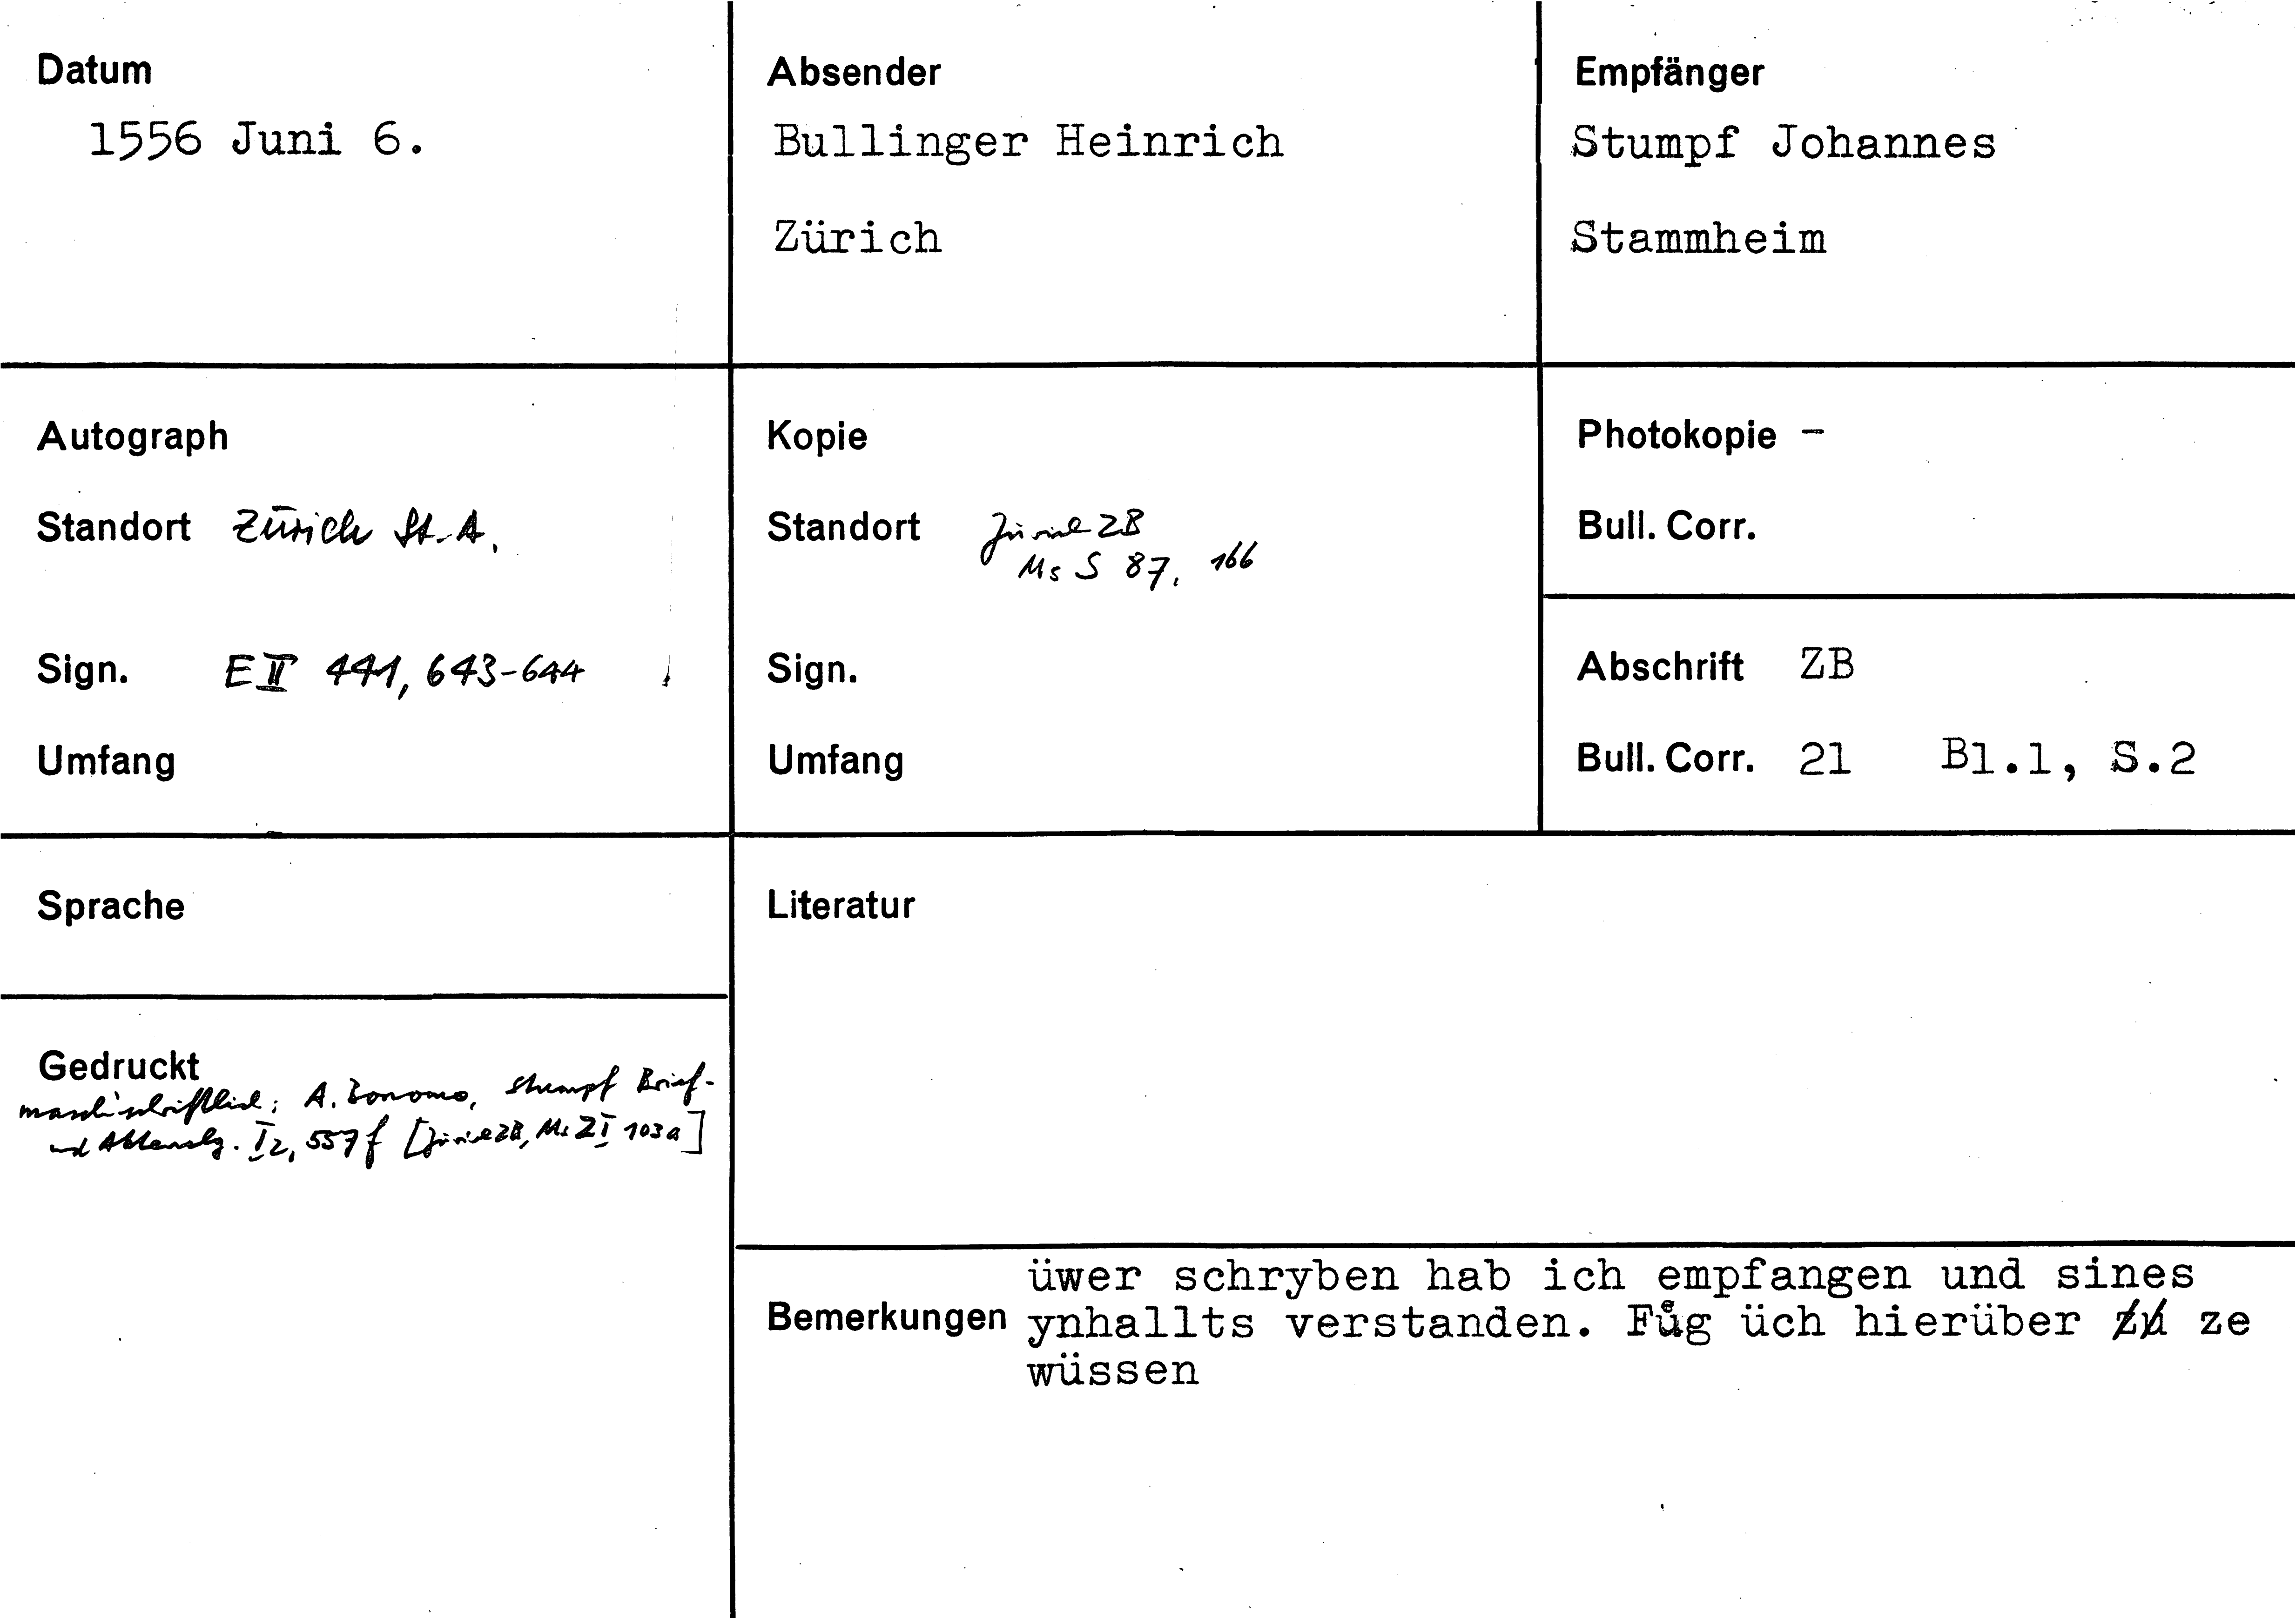 Datum
1556 Juni 6.
Absender
Bullinger Heinrich
Zürich
Empfänger
Stumpf Johannes
Stammheim
Autograph
Standort Zürich St. A.
Sign. E II 441, 643-644
Umfang
Kopie
Standort Zürich ZB
Ms S 87, 166
Sign.
Umfang
Photokopie -
Bull. Corr.
Abschrift ZB
Bull. Corr. 21 Bl.1, S.2
Sprache
Literatur
Gedruckt
maschinschriftlich: A. Bonomo, Stumpf Brief-
und Aktenslg. I 2, 557 f [Zürich ZB, Ms Z I 103a]
Bemerkungen
üwer schryben hab ich empfangen und sines
ynhallts verstanden. Fuͤg üch hierüber ze
wüssen